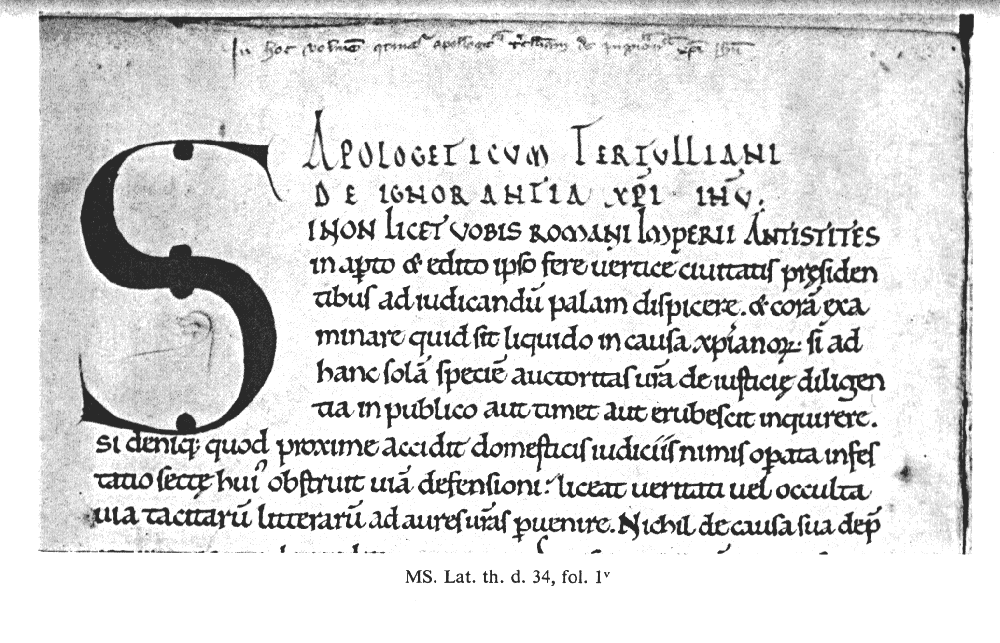 In hoc volumine apologetic de xpi ihu
APOLOGETICUM TERTULLIANI
DE IGNORANTIA XP̄I IHV̄.
S INON LICET VOBIS ROMANI IMPERII ANTISTITES
in apto & edito ipso fere uertice ciuitatis pręsiden
tibus ad iudicandū palam dispicere. & corā exa
minare quid sit liquido in causa xp̄ianoꝝ. si ad
hanc solā speciē auctoritas ur̄a de iusticię diligen
tia in publico aut timet aut erubescit inquirere.
si deniq; quod proxime accidit domesticis iudiciis nimis opata infes
tatio sectę hui᾽ obstruit uiā defensioni. liceat ueritati uel occulta
uia tacitarū litterarū ad aures ur̄as ꝑuenire. Nichil de causa sua dep̄
MS. Lat. th. d. 34, fol. 1ᵛ